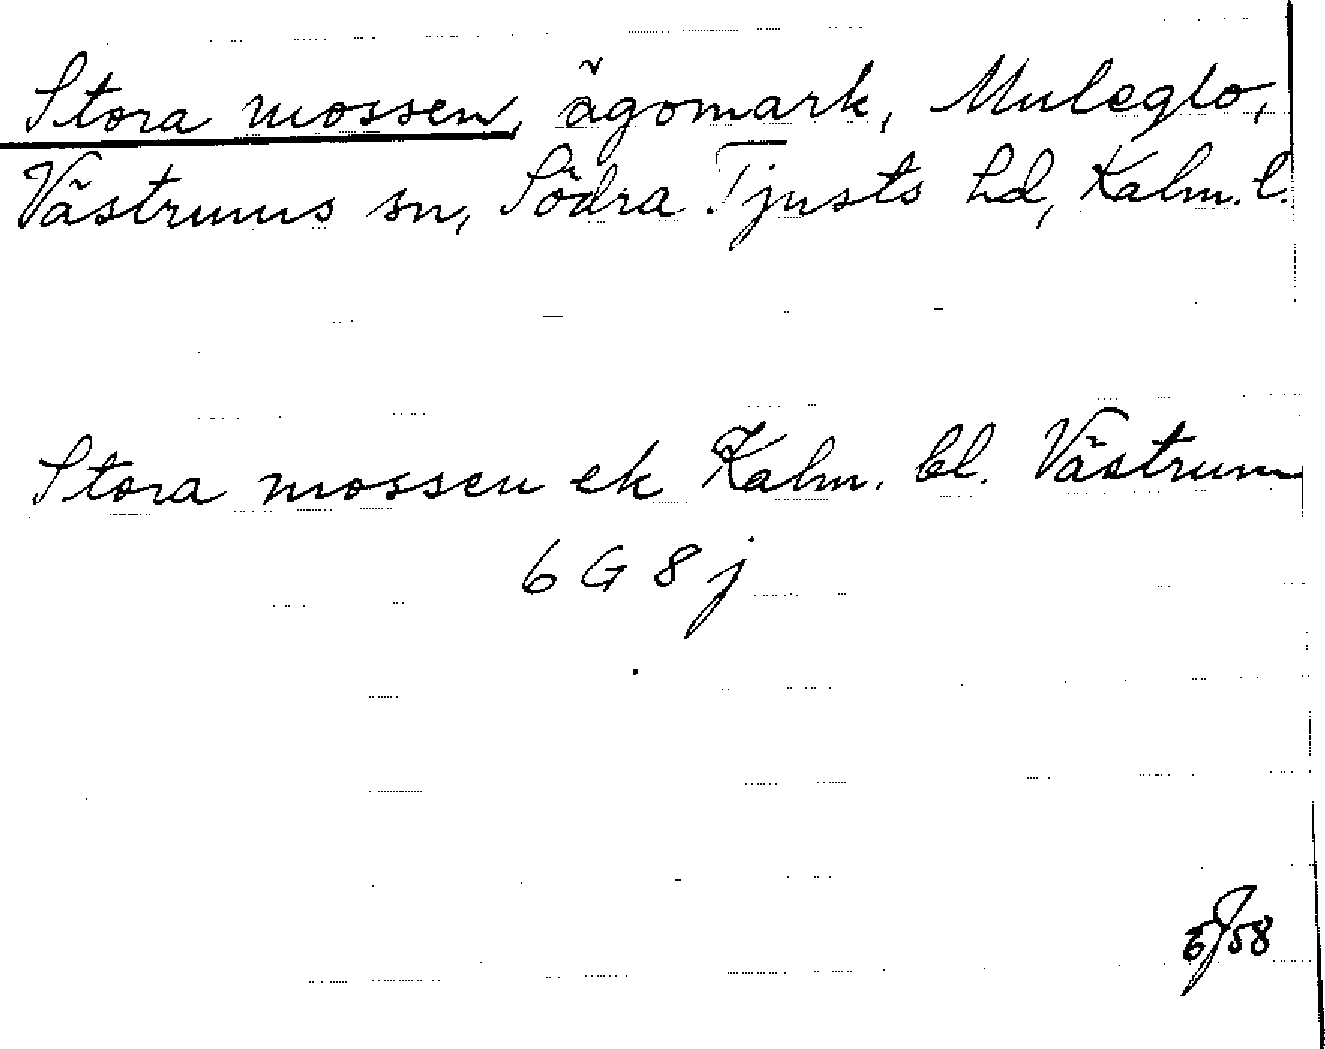 Stora mossen, ägomark, Muleglo,
Västrums sn, Södra Tjusts hd, Kalm. l.
Stora mossen ek Kalm. bl. Västrum
6 G 8 j